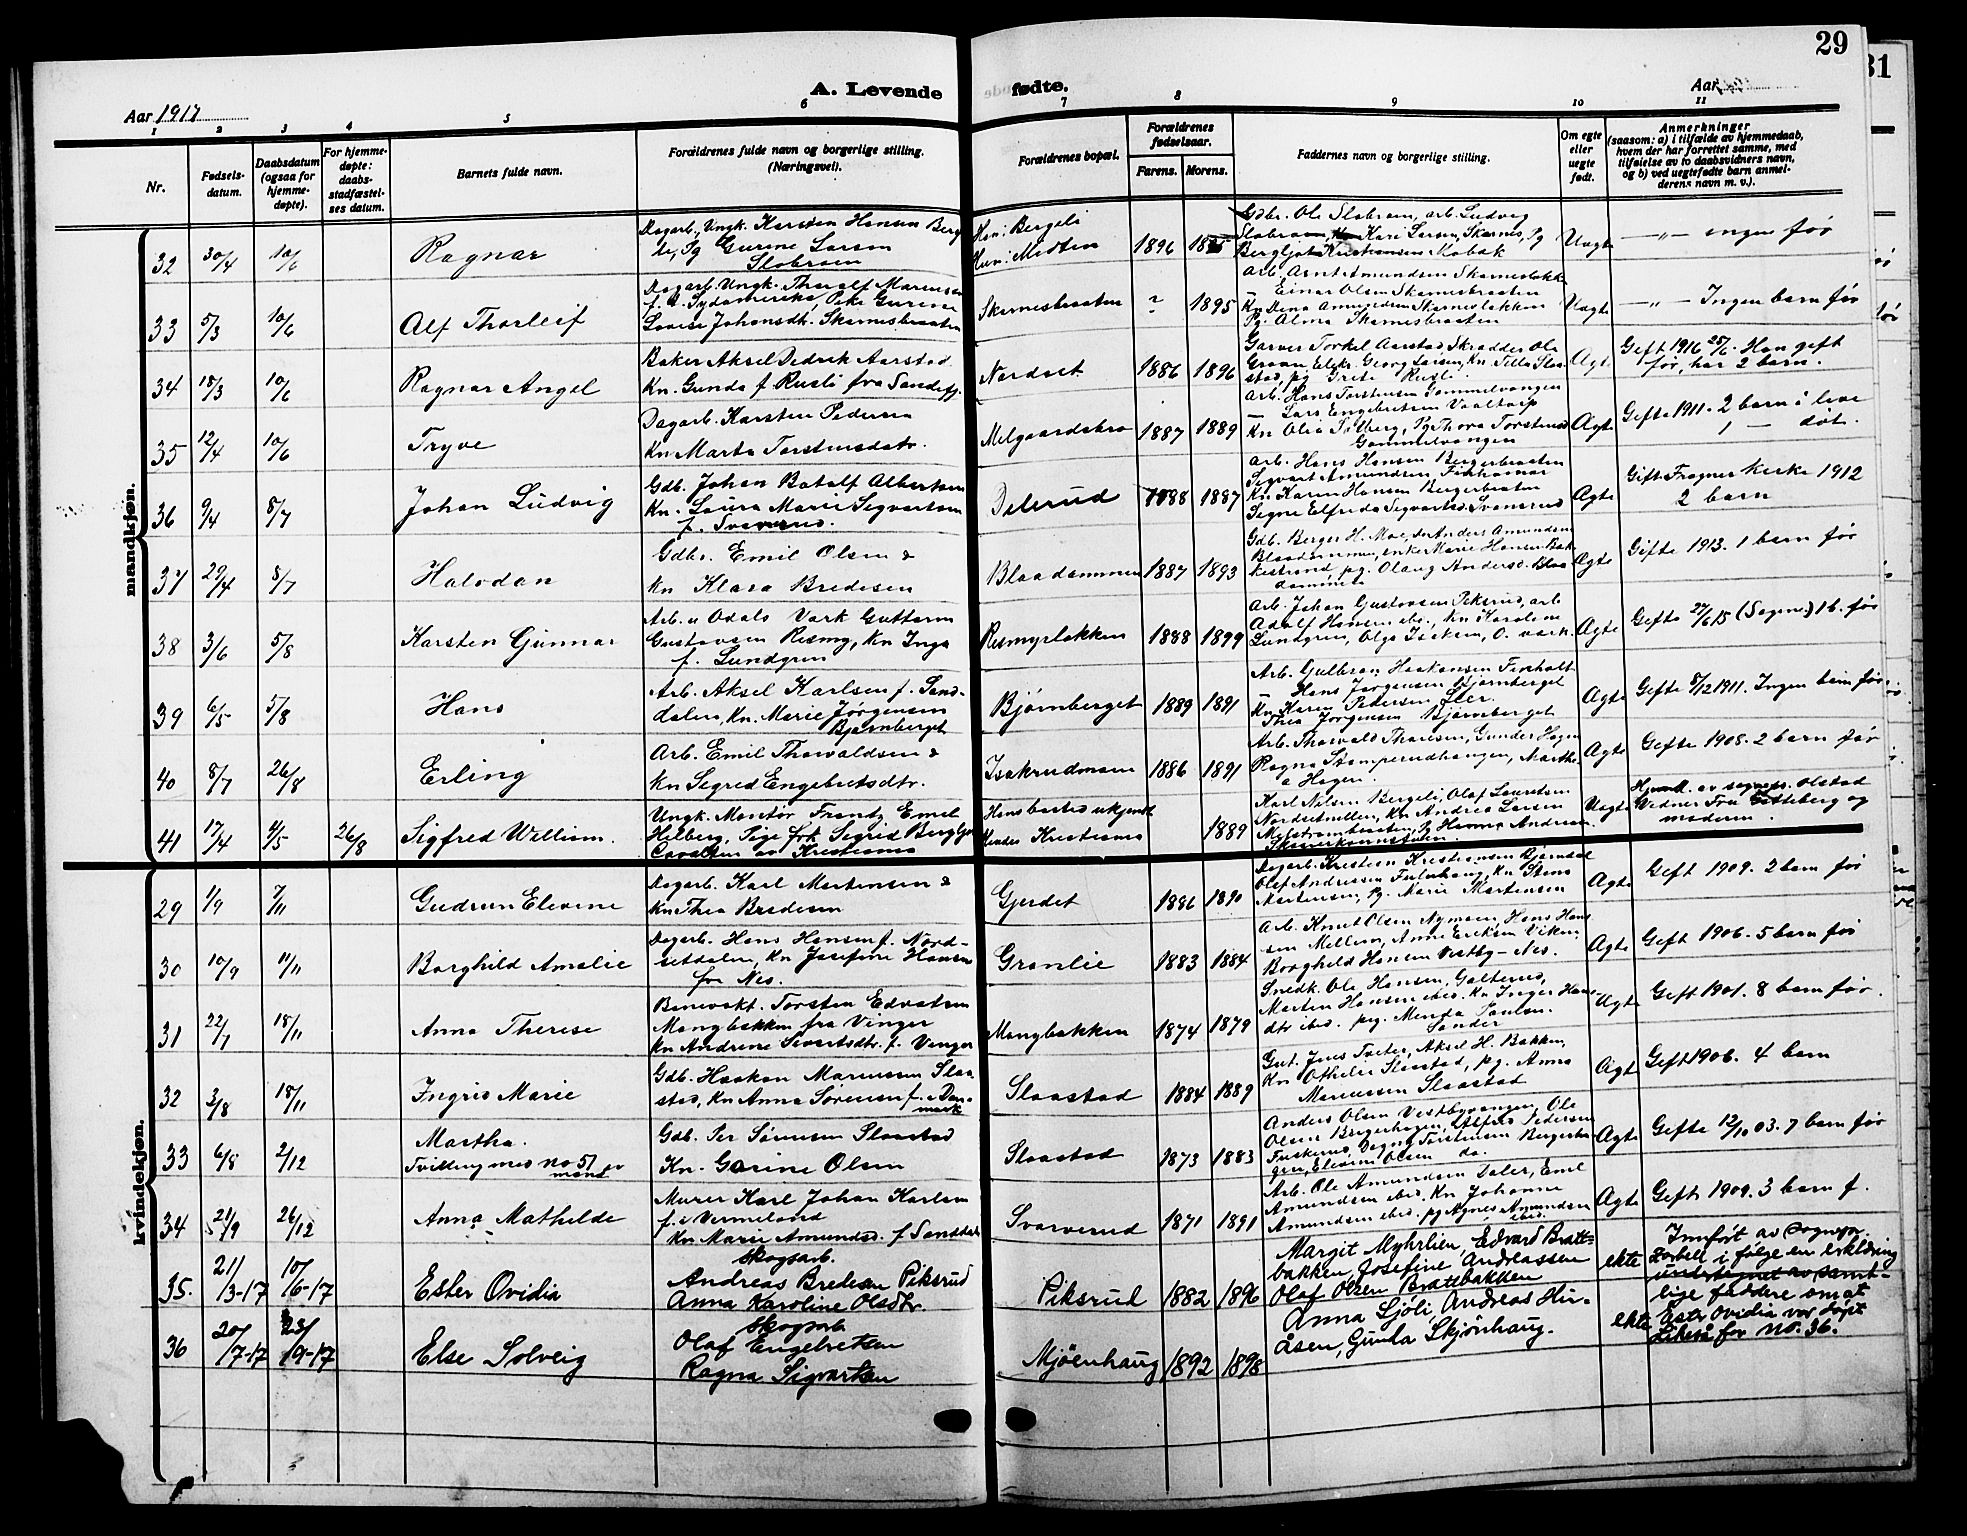 29
31
A. Levende
fødte.
Aar 1917
Aar
1 2 3 4 5 6 7 8 9 10 11
Nr.
Fødsels-
datum.
Daabsdatum
(ogsaa for
hjemme-
døpte).
For hjemme-
døpte:
daabs-
stadfæstel-
ses datum.
Barnets fulde navn.
Forældrenes fulde navn og borgerlige stilling.
(Næringsvei).
Forældrenes bopæl.
Forældrenes
fødselsaar.
Farens. Morens.
Faddernes navn og borgerlige stilling.
Om egte
eller
uegte
født.
Anmerkninger
(saasom: a) i tilfælde av hjemmedaab,
hvem der har forrettet samme, med
tilføielse av to daabsvidners navn,
og b) ved uegtefødte barn anmel-
derens navn m. v.).
mandkjøn.
32 30/4 10/6 Ragnar
Dagarb., Ungk. Karsten Hansen Berg
li, Pg Gurine Larsen
Slobraaten
Han: Bergeli
Hun: Midten
1896
Gdbr. Ole Slobraaen, arb. Ludvig
Slobraaen, Kari Larsen, Skarnes, Pg
Bergljot Kristiansen Kabak
Uegte
—"— ingen før
33 5/3 10/6 Alf Thorleif
Dagarb. Ungk. Thoralf Marensen
f. S. Sydamerika, Pike Gurine
Lovise Johansdt. Skarnesbraaten
Skarnesbraaten ? 1895
Arb. Arnt Amundsen Skarnesløkke
Einar Olsen Skarnesbraaten
Kn Dina Amundsen Skarnesløkken
Pg. Alma Skarnesbraaten
Uegte
—"— Ingen barn før
34 18/3 10/6 Ragnar Angel
Baker Aksel Didrik Aarstad
Kn. Gunda f. Rusli fra Sandefj.
Nordset 1886 1896
Garver Torkel Aarstad Skrædder Ole
Graan Elektr. Georg Larsen, Kn Tilla Slaa
stad, pg Grete Rusli
Agte
Gift 1916 25/6. Han gift
før, har 2 barn.
35 12/4 10/6 Tryve
Dagarb. Karsten Pedersen
Kn Marta Torstensdatr.
Melgaardsbro 1887 1889
Arb. Hans Torstensen Gammelvangen
Lars Engebretsen Vaaltorp
Kn Olia Solberg, Pg Thora Torstensd
Gammelvangen
Agte
Gifte 1911. 2 barn i live
1 — død.
36 9/4 8/7 Johan Ludvig
Gdb. Johan Botolf Albertsen
Kn. Laura Marie Sigvartsen
f. Svarverud.
Delerud 1888 1887
Arb. Hans Hansen Bergerbraaten
Sigvart Amundsen Finholmar
Kn. Karen Hansen Bergerbraaten
Signe Elfrida Sigvartsd. Svensrud
Agte
Gift Fragner kirke 1912
2 barn
37 29/4 8/7 Halvdan
Gdbr. Emil Olsen &
Kn Klara Bredesen
Blaadammen 1887 1893
Gdb. Berger H. Moe, Anders Amundsen
Blaadammen, enke Marie Hansen Bak
kestrand pg. Olaug Andersd. Blaa
dammen
Agte
Gifte 1913. 1 barn før
38 3/6 5/8 Karsten Gunnar
Arb. v Odals Værk Guttorm
Gustavsen Rismy, Kn Inga
f. Lundgren
Rismyrløkken 1888 1899
Arb. Johan Gustavsen Piksrud, arb
Adolf Hansen ibd., Kn Karoline
Lundgren, Olga Isaksen, O. værk.
Agte
Gifte 27/6 15 (Sogner) 1 b. før
39 6/5 5/8 Hans
Arb. Aksel Karlsen f. Sand-
dalen, Kn. Marie Jørgensen
Bjørnberget
Bjørnberget 1889 1891
Arb. Gulbran Haakonsen Finholt
Hans Jørgensen Bjørnberget
Kn Karen Pedersen, Ler.
Thea Jørgensen Bjørnberget
Agte
Gifte 8/12 1911. Ingen barn før
40 8/7 26/8 Erling
Arb. Emil Thorvaldsen &
Kn Sigred Engebretsdtr.
Isakrudmoen 1886 1891
Arb. Thorvald Thoresen, Gunder Hagen
Ragna Stomperudhaugen, Marthe
a Hagen.
Agte
Gifte 1908. 2 barn før
41 17/4 4/5 26/8 Sigfred William.
Ungk. Montør Frantz Emil
Helberg, Pige frk Sigrid Bergljot
Cavallin av Kristiania
Hans bosted ukjendt
Hendes Kristiania
1889
Karl Nilsen Bergeli, Olaf Lauritsen
Nordsetmellen, Kn Andrea Larsen
Melstrømbraaten, Pg Hanna Andersen
Uegte
Hjemd. av sognepr. Olstad
Vidner Fru Gotteberg og
moderen.
kvindekjøn.
29 1/9 7/11 Gudrun Elevine
Dagarb. Karl Martensen &
Kn Thea Bredesen
Gjerdet 1886 1890
Dagarb. Kristian Kristiansen Bjørndal
Olaf Andreassen Finhaug, Kn Stena
Martensen, Pg. Marie Martensen
Agte
Gift 1909. 2 barn før
30 10/9 11/11 Borghild Amalie
Dagarb. Hans Hansen f. Nord-
setdalen, Kn Josefine Hansen
fra Nes.
Granlie 1883 1884
Arb. Knut Olsen Nymoen, Hans Han-
sen Mellem, Anne Eriksen Viken,
Borghild Hansen Vestby — Nes.
Agte
Gift 1906. 5 barn før
31 22/7 18/11 Anna Therese
Banevokt. Torsten Edvartsen
Mangbakken fra Vinger
Kn Andrine Sivertsdtr. f. Vinger
Mangbakken 1874 1879
Snedk. Ole Hansen, Galterud,
Marten Hansen ibd. Kn Inger Hans-
dtr ibd. pg. Menda Paulsen.
Sander
Agte
Gift 1901. 8 barn før.
32 2/8 18/11 Ingrid Marie
Gdb. Haakon Mariussen Slaa
stad, Kn Anna Sørensen f. i Dan-
mark
Slaastad 1884 1889
Gut. Jens Tveter, Aksel H. Bakken,
Kn Othelie Slaastad, pg. Anna
Mariussen Slaastad
Agte
Gift 1906. 4 barn
33 6/8 2/12 Martha.
Tvilling med no 51
mandkj
Gdb. Per Sørensen Slaastad
Kn. Gorine Olsen
Slaastad 1873 1883
Anders Olsen Vestbyvangen, Ole
Olsen Bergerhagen, Alfred Pedersen
Fuskerud, Dagny Torstensen Bergerha
gen, Elevine Olsen do.
Agte
Gifte 12/10 03. 7 barn før
34 21/9 26/12 Anna Mathilde
Murer Karl Johan Karlsen
f. i Vermeland
Kn Marie Amundsd. f Sanddal
Svarverud 1871 1891
Arb. Ole Amundsen Daler, Emil
Amundsen ibid. Kn Johanne
Amundsen ibid. pg Agnes Amundsen
ibid.
Agte
Gift 1909. 3 barn f.
35. 21/3-17 10/6-17 Ester Ovidia
Skogsarb.
Andreas Bredesen Piksrud
Anna Karoline Olsdtr.
Piksrud 1882 1896
Margit Myhrlien, Edvard Bratt-
bakken, Josefine Andreassen
Olaf Olsen Brattbakken
ekte
Innført av sognepr.
Zorbell i følge en erklæring
undertegnet av samt-
lige faddere om at
Estr Ovidia var døpt
Likeså for no. 36.
36 20/7-17 23/9-17 Else Solveig
Skogsarb
Olaf Engebretsen
Ragna Sigvartsen
Mjøenhaug 1892 1898
Anna Sjöli, Andreas Hur-
åsen, Gunda Skjönhaug.
ekte